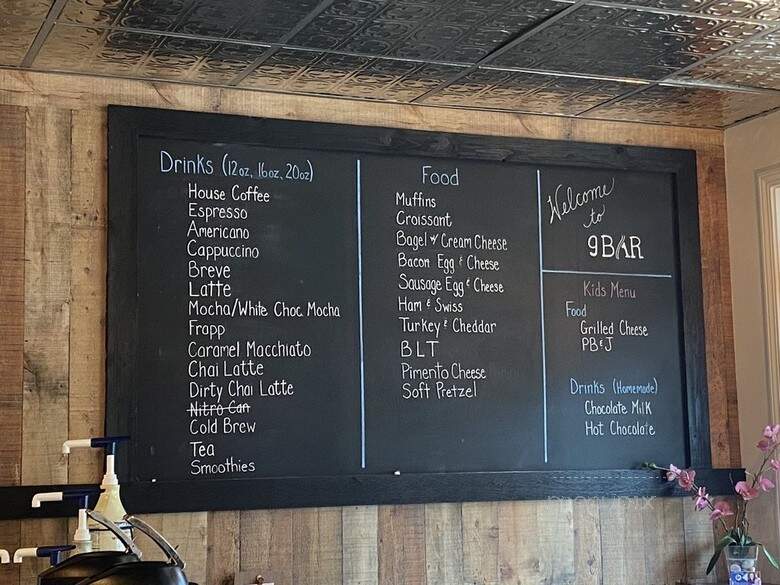 Drinks (12oz, 16oz, 20oz)
House Coffee
Espresso
Americano
Cappuccino
Breve
Latte
Mocha/White Choc Mocha
Frapp
Caramel Macchiato
Chai Latte
Dirty Chai Latte
Nitro Can
Cold Brew
Tea
Smoothies
Food
Muffins
Croissant
Bagel w/ Cream Cheese
Bacon Egg & Cheese
Sausage Egg & Cheese
Ham & Swiss
Turkey & Cheddar
BLT
Pimento Cheese
Soft Pretzel
Welcome
to
9BAR
Kids Menu
Food
Grilled Cheese
PB&J
Drinks (Homemade)
Chocolate Milk
Hot Chocolate